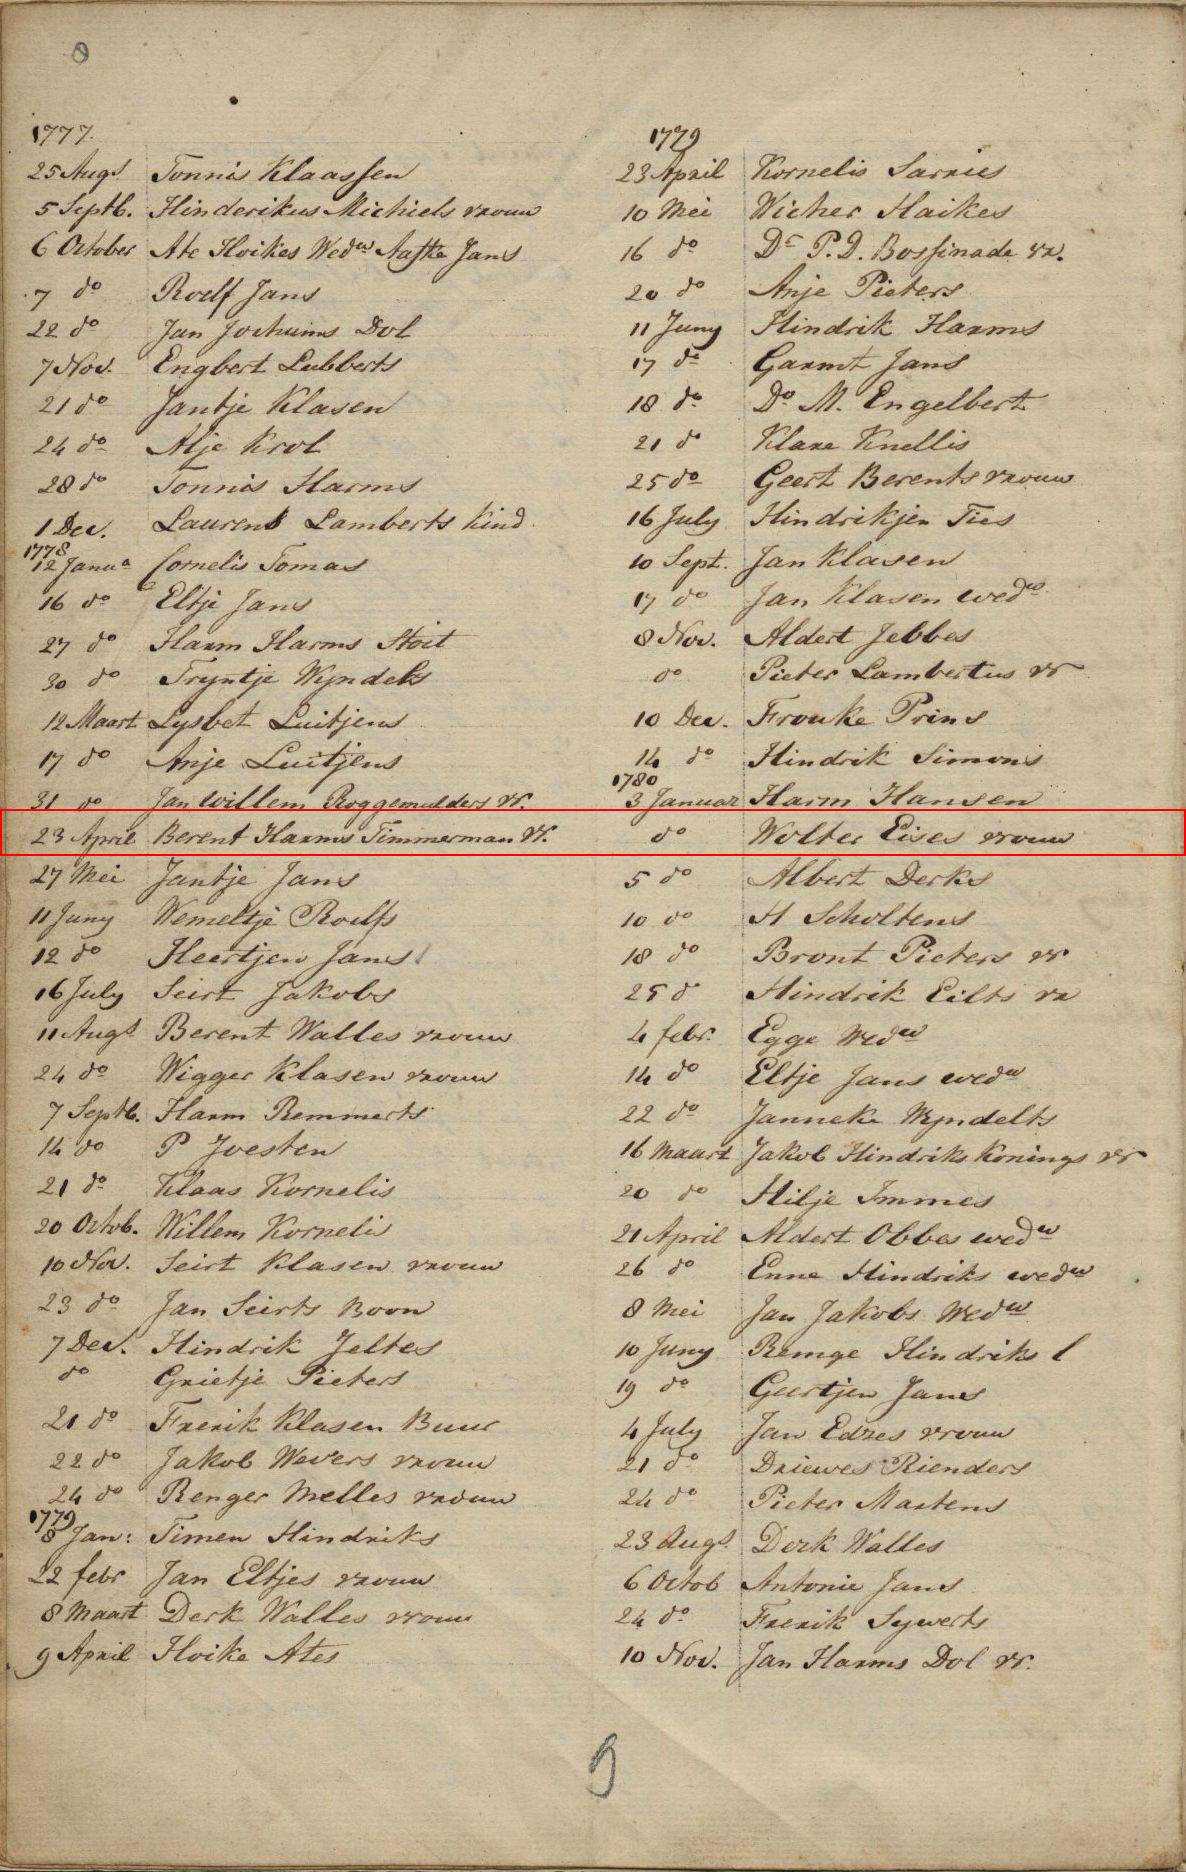 1777.
25 Augs Tonnis Klaassen
5 Septb. Hinderikus Michiels vrouw
6 October Ate Hoikes Wedw Aafke Jans
7 do Roelf Jans
22 do Jan Jochums Dol
7 Nov. Engbert Lubberts
21 do Jantje Klasen
24 do Alje Krol
28 do Tonnis Harms
1 Dec. Laurens Lamberts Kind
1778
12 Janua Cornelis Tomas
16 do Eltje Jans
27 do Harm Harms Stoit
30 do Tryntje Wyndels
12 Maart Lysbet Luitjens
17 do Anje Luitjens
31 do Jan Willem Roggemulders vr.
23 April Berent Harms Timmerman vr.
27 Mei Jantje Jans
11 Juny Wemeltje Roelfs
12 do Heertjen Jans
16 July Seirt Jakobs
11 Augs Berent Walles vrouw
24 do Wigger Klasen vrouw
7 Septb. Harm Remmerts
14 do P Joesten
21 do Klaas Kornelis
20 Octob. Willem Kornelis
10 Nov. Seirt Klasen vrouw
23 do Jan Seirts Boon
7 Dec. Hindrik Jeltes
do Grietje Pieters
21 do Frerik Klasen Buur
22 do Jakob Wevers vrouw
24 do Renger Melles vrouw
1779
8 Jan: Timen Hindriks
22 febr Jan Eltjes vrouw
8 Maart Derk Walles vrouw
9 April Hoike Ates
1779
23 April Kornelis Sarries
10 Mei Wicher Haikes
16 do Dr P. D. Bossinade vr.
20 do Anje Pieters
11 Juny Hindrik Harms
17 do Garmt Jans
18 do Do M. Engelbert
21 do Klare Knellis
25 do Geert Berents vrouw
16 July Hindrikjen Ties
10 Sept. Jan Klasen
17 do Jan Klasen wedw
8 Nov. Aldert Jebbes
do Pieter Lambertus vr
10 Dec. Frouke Prins
14 do Hindrik Simons
1780
3 Januar Harm Hansen
do Wolter Eises vrouw
5 do Albert Derks
10 do H Scholtens
18 do Bront Pieters vr
25 do Hindrik Eilts vr
4 febr. Egge Wedw
14 do Eltje Jans wedw
22 do Janneke Wyndelts
16 Maart Jakob Hindriks Konings vr
20 do Hilje Immes
21 April Aldert Obbes wedw
26 do Enne Hindriks wedw
8 Mei Jan Jakobs Wedw
10 Juny Remge Hindriks l
19 do Geertjen Jans
4 July Jan Edzes vrouw
21 do Driewes Rienders
24 do Pieter Martens
23 Augs. Derk Walles
6 Octob Antonie Jans
24 do Frerik Sywerts
10 Nov. Jan Harms Dol vr.
9